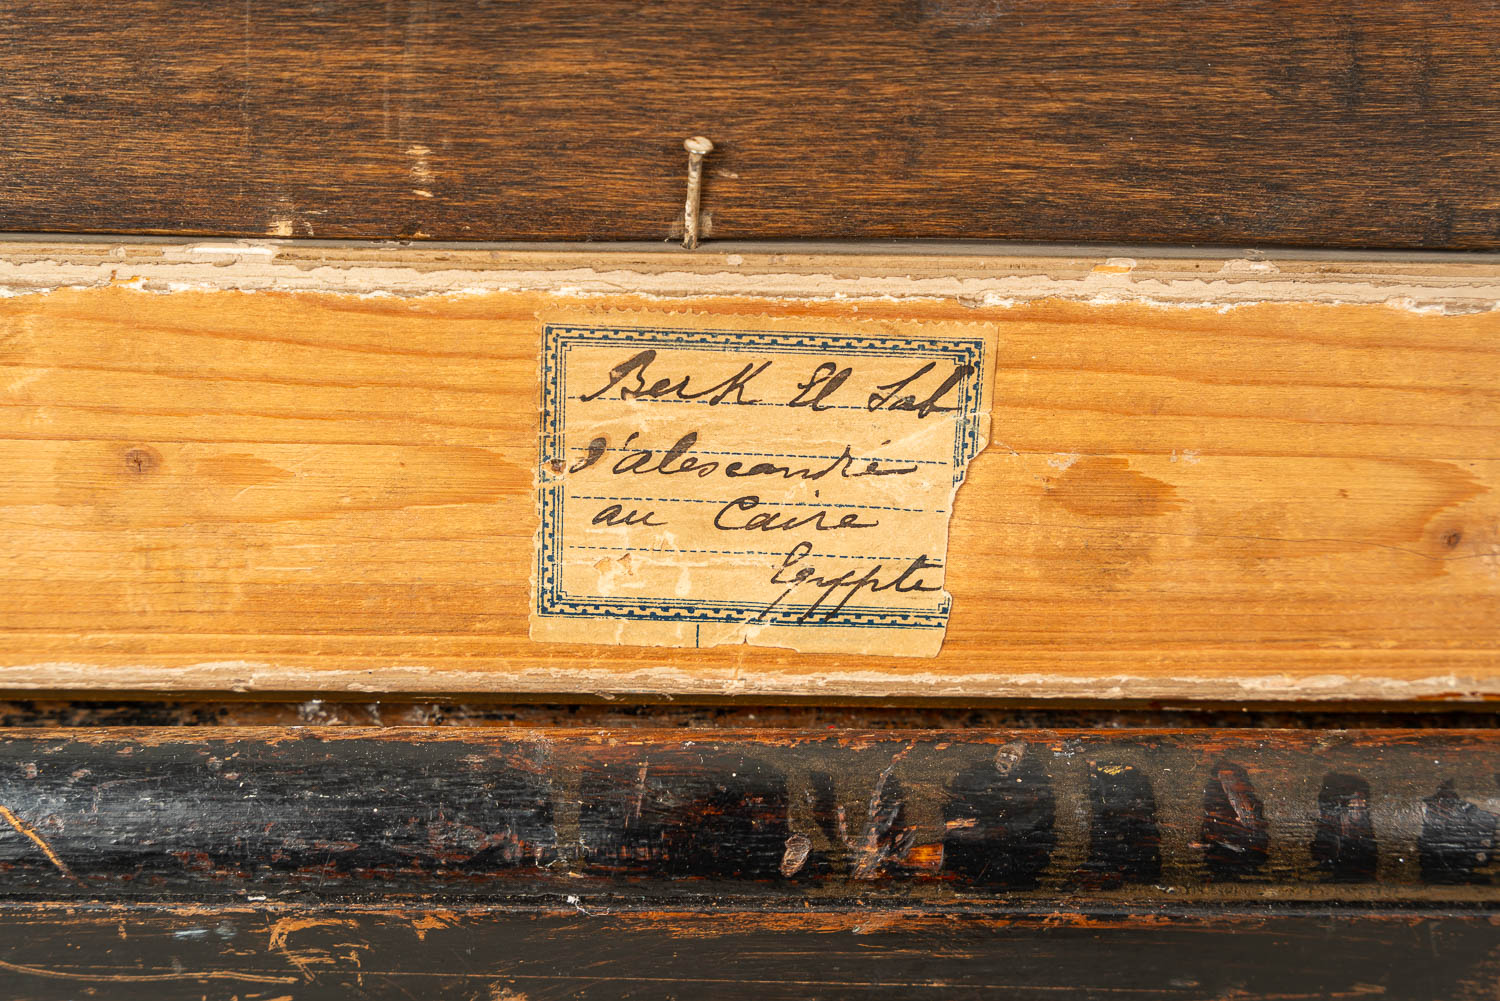 Berk El Sab
d'alescandrie
au Caire
Egypte